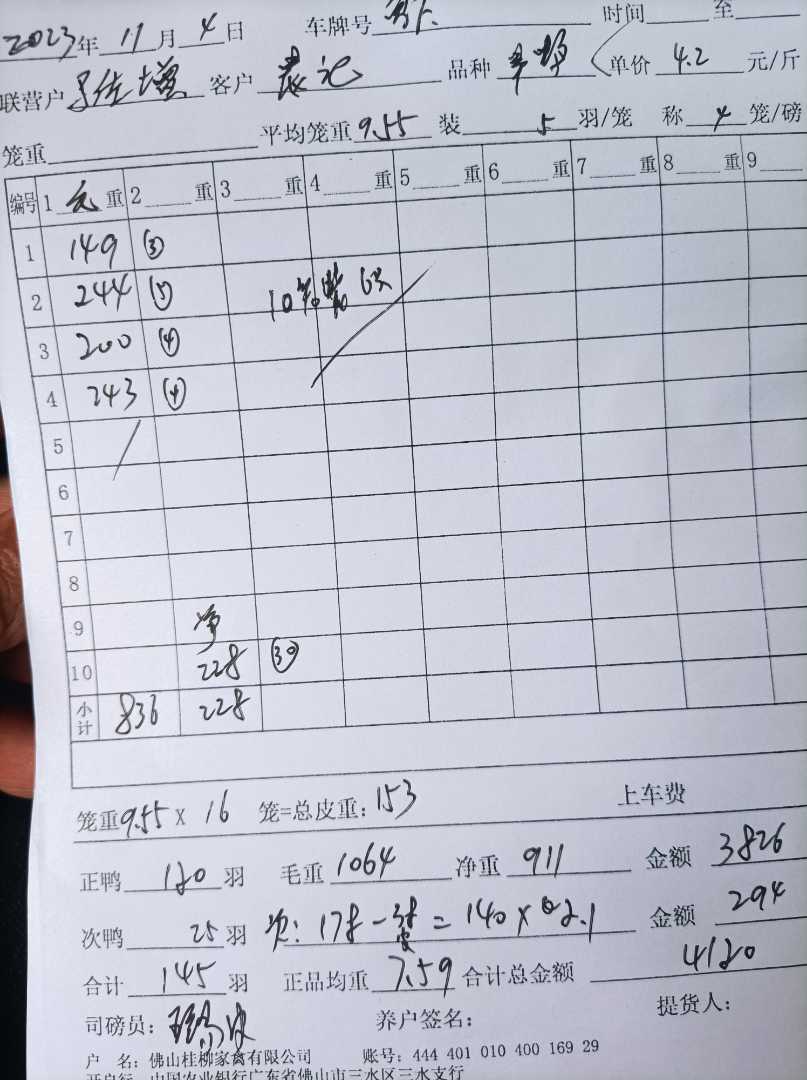 2023年 11 月 4 日 车牌号 时间 至
联营户 客户 农记 品种 单价 4.2 元/斤
笼重 平均笼重 9.55 装 5 羽/笼 称 4 笼/磅
编号 1 毛 重 2 重 3 重 4 重 5 重 6 重 7 重 8 重 9
1 149 ③
2 244 ⑤
3 200 ④
4 243 ④
5
6
7
8
9 净
10 228 ㉚
小计 836 228
笼重 9.55 x 16 笼=总皮重: 153 上车费
正鸭 120 羽 毛重 1064 净重 911 金额 3826
次鸭 25 羽 次: 178 - 38 = 140 x 2.1 金额 294
皮
合计 145 羽 正品均重 7.59 合计总金额 4120
司磅员: 养户签名: 提货人:
户 名: 佛山桂柳家禽有限公司 账号: 444 401 010 400 169 29
开户行 中国农业银行广东省佛山市三水区三水支行